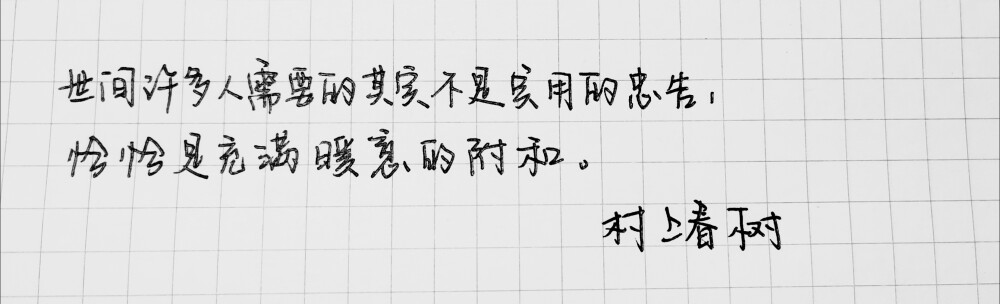 世间许多人需要的其实不是实用的忠告，
恰恰是充满暖意的附和。
村上春树